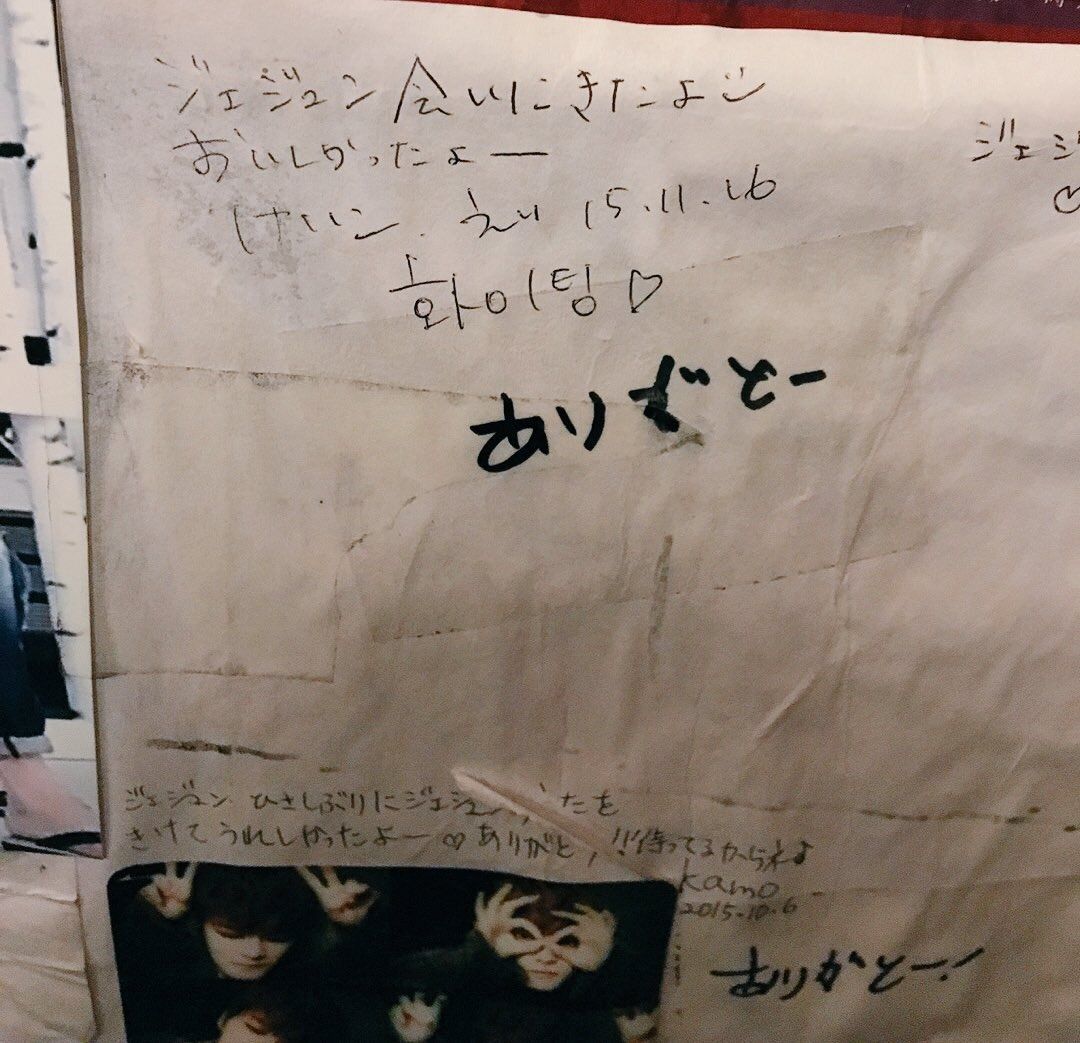 ジェジュン会いにきたよ
おいしかったよー
けいこ.えり 15.11.16
화이팅♡
ありがとー
ジェジ
♡
ジェジュン ひさしぶりにジェジュン うたを
きけてうれしかったよー♡ありがと!!待ってるからねよ
kamo
2015.10.6
ありがとー!